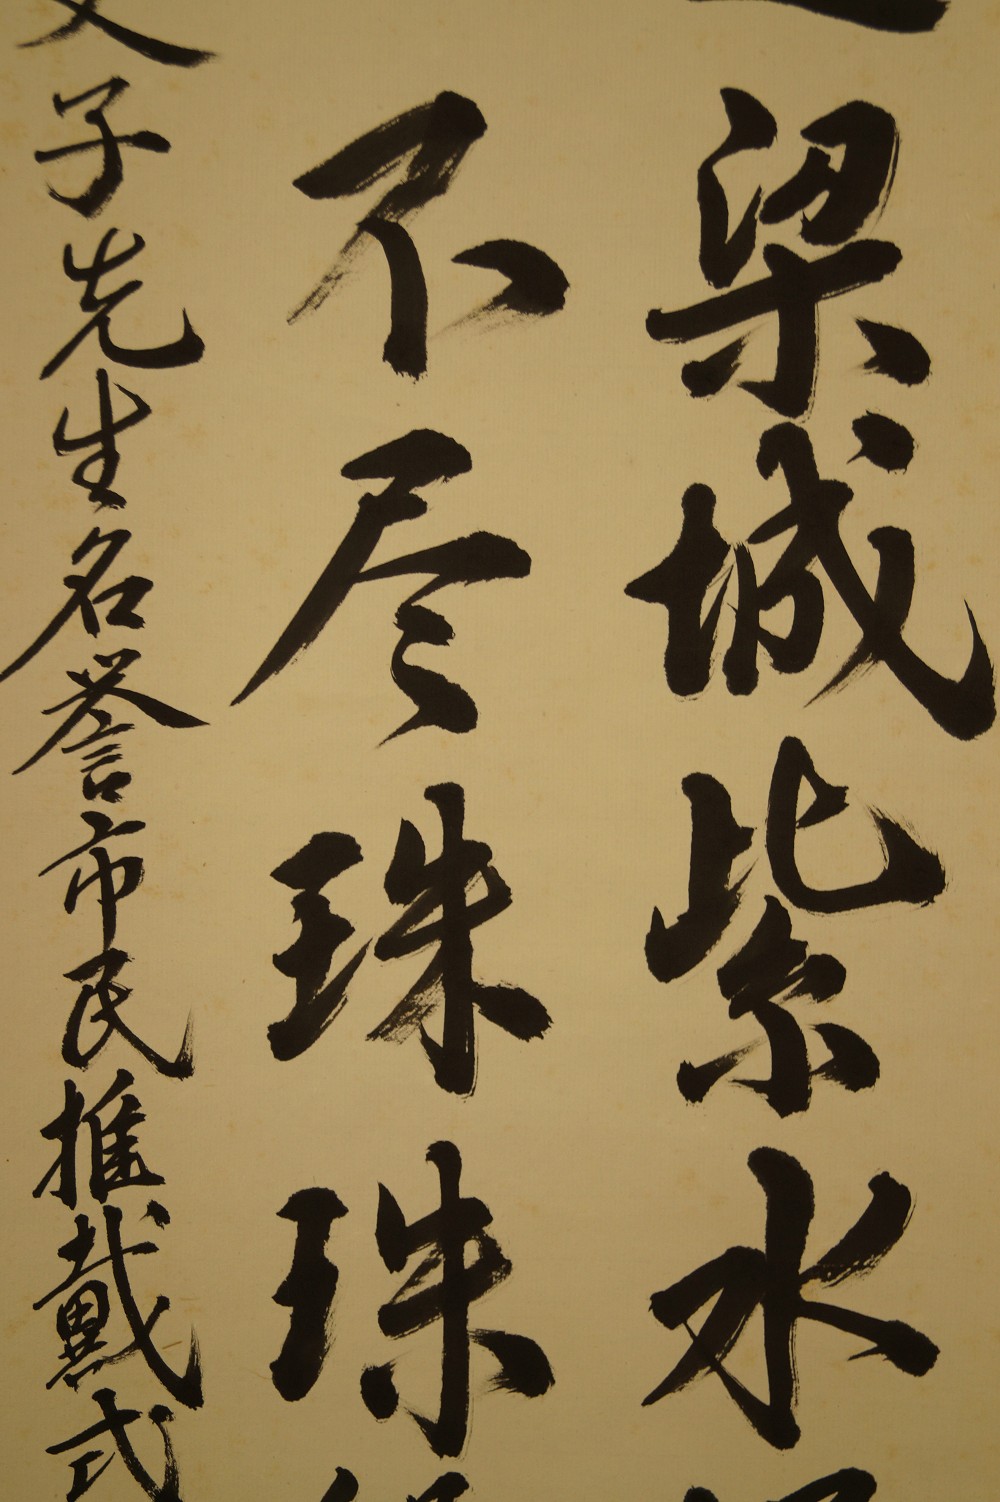 梁城紫水
不尽珠珠
文子先生名誉市民推戴式